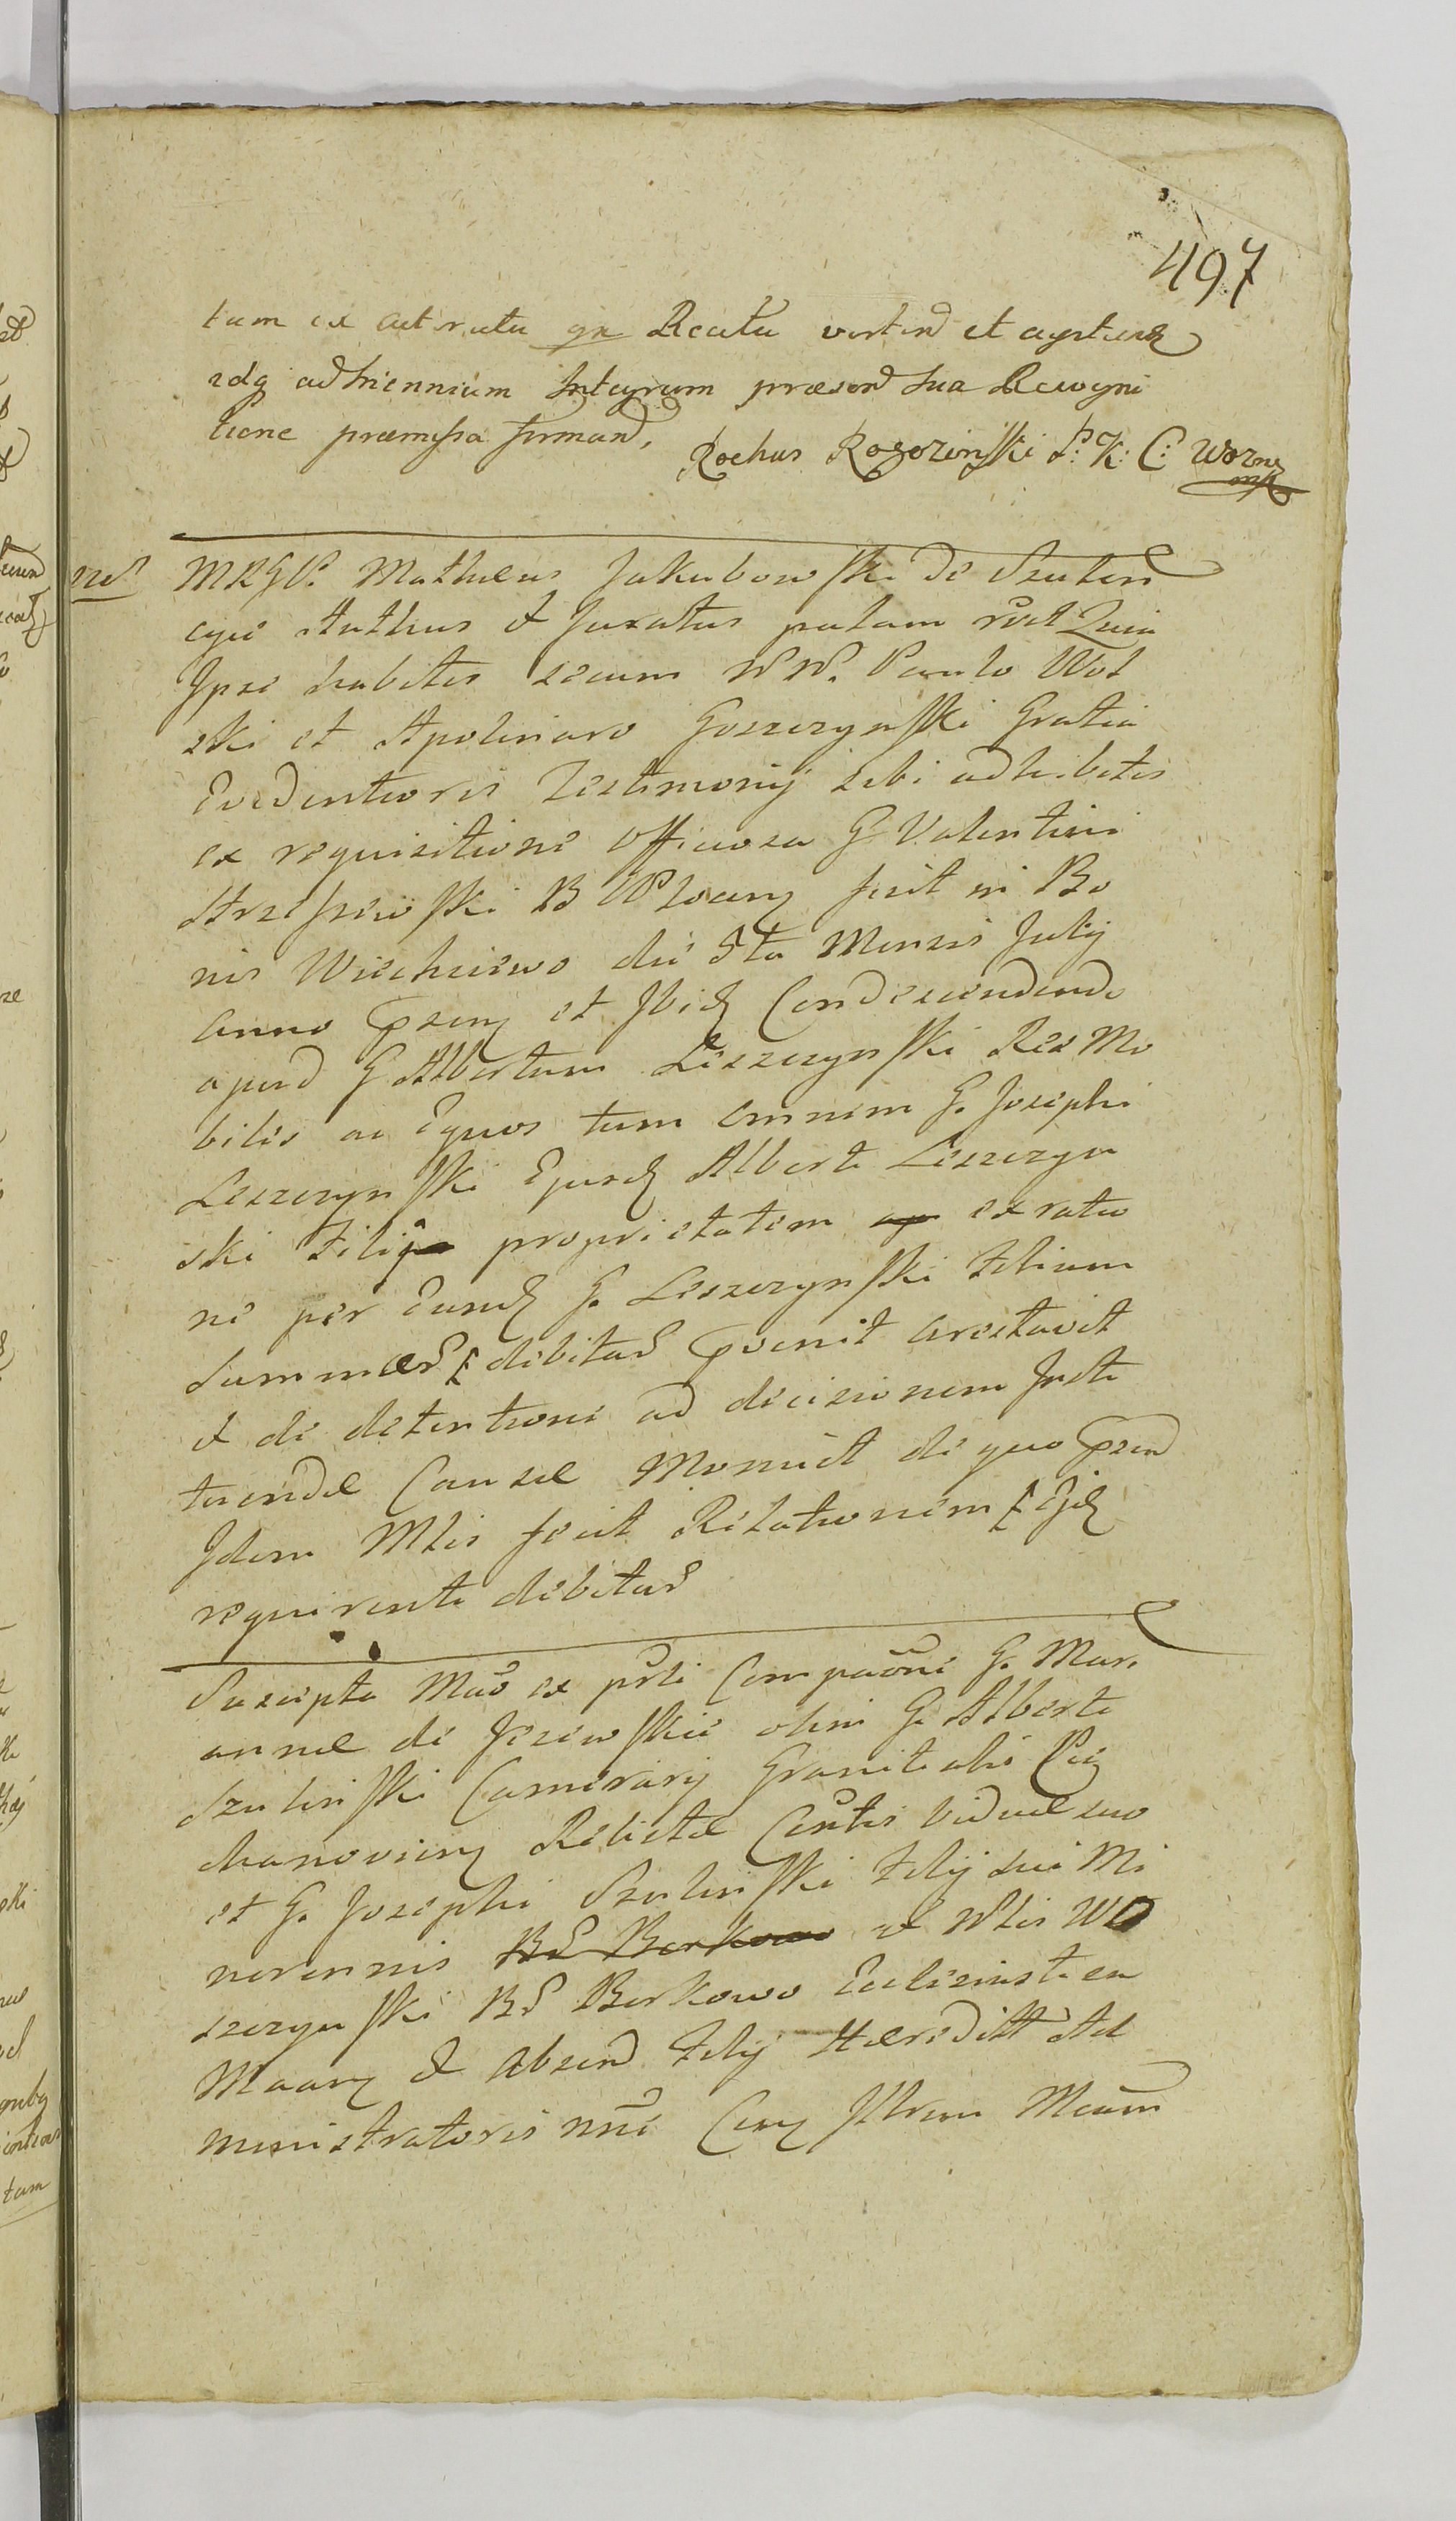 497
tum ex Actoratu gn Reatu vertend et agitand
sdg ad triennium Integrum præsend sua Recogni
tione præmissa firmand,
Rochus Rogoziński P: K: C: Wozny
mp
red
MRGP. Matheus Jakubowski de Szulen
cyie Authus et Juratus palam rūt Quia
Ipse habitis secum NN. Paulo Wol
ski et Apolinaro Goszczynski Gratia
Evidentioris Testimonij sibi adhibitis
ex requisitione officiosa G. Valentini
Strzeszewski B fuit in Bo
nis Wiechciewo die 5ta Mensis Julij
Anno et Ibid Condescendendo
apud G Albertum Leszczynski Res Mo
biles ac Equos tum omnem G. Josephi
Leszczynski Ejusd Alberti Leszczyn
ski Filij proprietatem ap ex ratio
ne per Eund G. Leszczynski Filium
Summær debitar pvenit arestavit
et de detentione ad decisionem Insti
tuendæ Causæ Monuit de quo psens
Idem Mlis fecit Relationem Ejd
requirenti debitar
Suscepta Mao ex prli Compaōne G. Mari
annæ de Jezewskie olim G. Alberti
Szulinski Camerarij Granitialis Cie
chanovien Relictæ Contis Viduæ suo
et G. Josephi Szulinski Filij sui Mi
norennis Bd Borkowo et Nlis Wo
szczynski Bd Borkowo Ecclesiastica
Maary et Absend Filij Hæreditt Ad
ministratoris nnē Cony Iltrem Meum